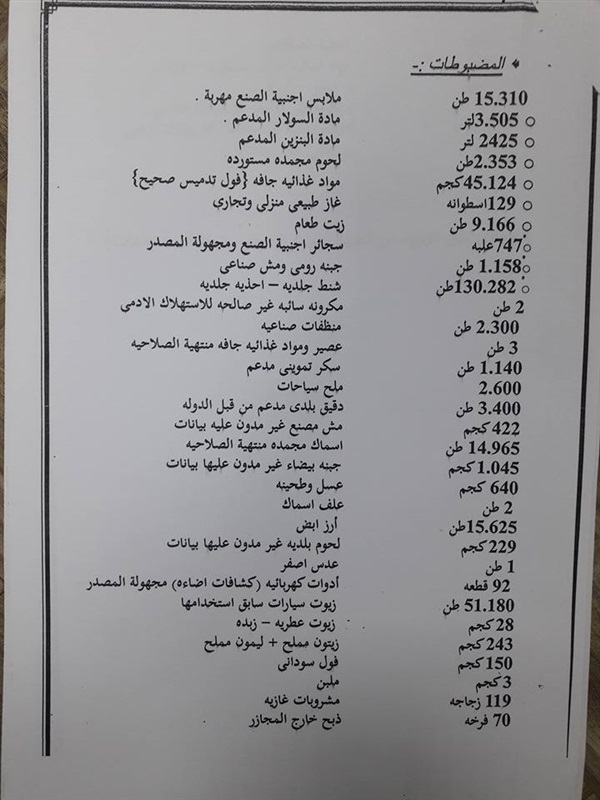 المضبوطات :-
15.310 طن ملابس اجنبية الصنع مهربة .
3.505لتر مادة السولار المدعم .
2425 لتر مادة البنزين المدعم
2.353طن لحوم مجمده مستورده
45.124كجم مواد غذائيه جافه {فول تدميس صحيح}
129اسطوانه غاز طبيعى منزلى وتجارى
9.166 طن زيت طعام
747علبه سجائر اجنبية الصنع ومجهولة المصدر
1.158طن جبنه رومى ومش صناعى
130.282طن شنط جلديه – احذيه جلديه
2 طن مكرونه سائبه غير صالحه للاستهلاك الادمى
2.300 طن منظفات صناعيه
3 طن عصير ومواد غذائيه جافه منتهية الصلاحيه
1.140 طن سكر تموينى مدعم
2.600 ملح سياحات
3.400 طن دقيق بلدى مدعم من قبل الدوله
422 كجم مش مصنع غير مدون عليه بيانات
14.965 طن اسماك مجمده منتهية الصلاحيه
1.045كجم جبنه بيضاء غير مدون عليها بيانات
640 كجم عسل وطحينه
2 طن علف اسماك
15.625طن أرز ابض
229كجم لحوم بلديه غير مدون عليها بيانات
1 طن عدس اصفر
92 قطعه أدوات كهربائيه (كشافات اضاءه) مجهولة المصدر
51.180 طن زيوت سيارات سابق استخدامها
28 كجم زيوت عطريه – زبده
243كجم زيتون مملح + ليمون مملح
150 كجم فول سودانى
3 كجم ملبن
119 زجاجه مشروبات غازيه
70 فرخه ذبح خارج المجازر